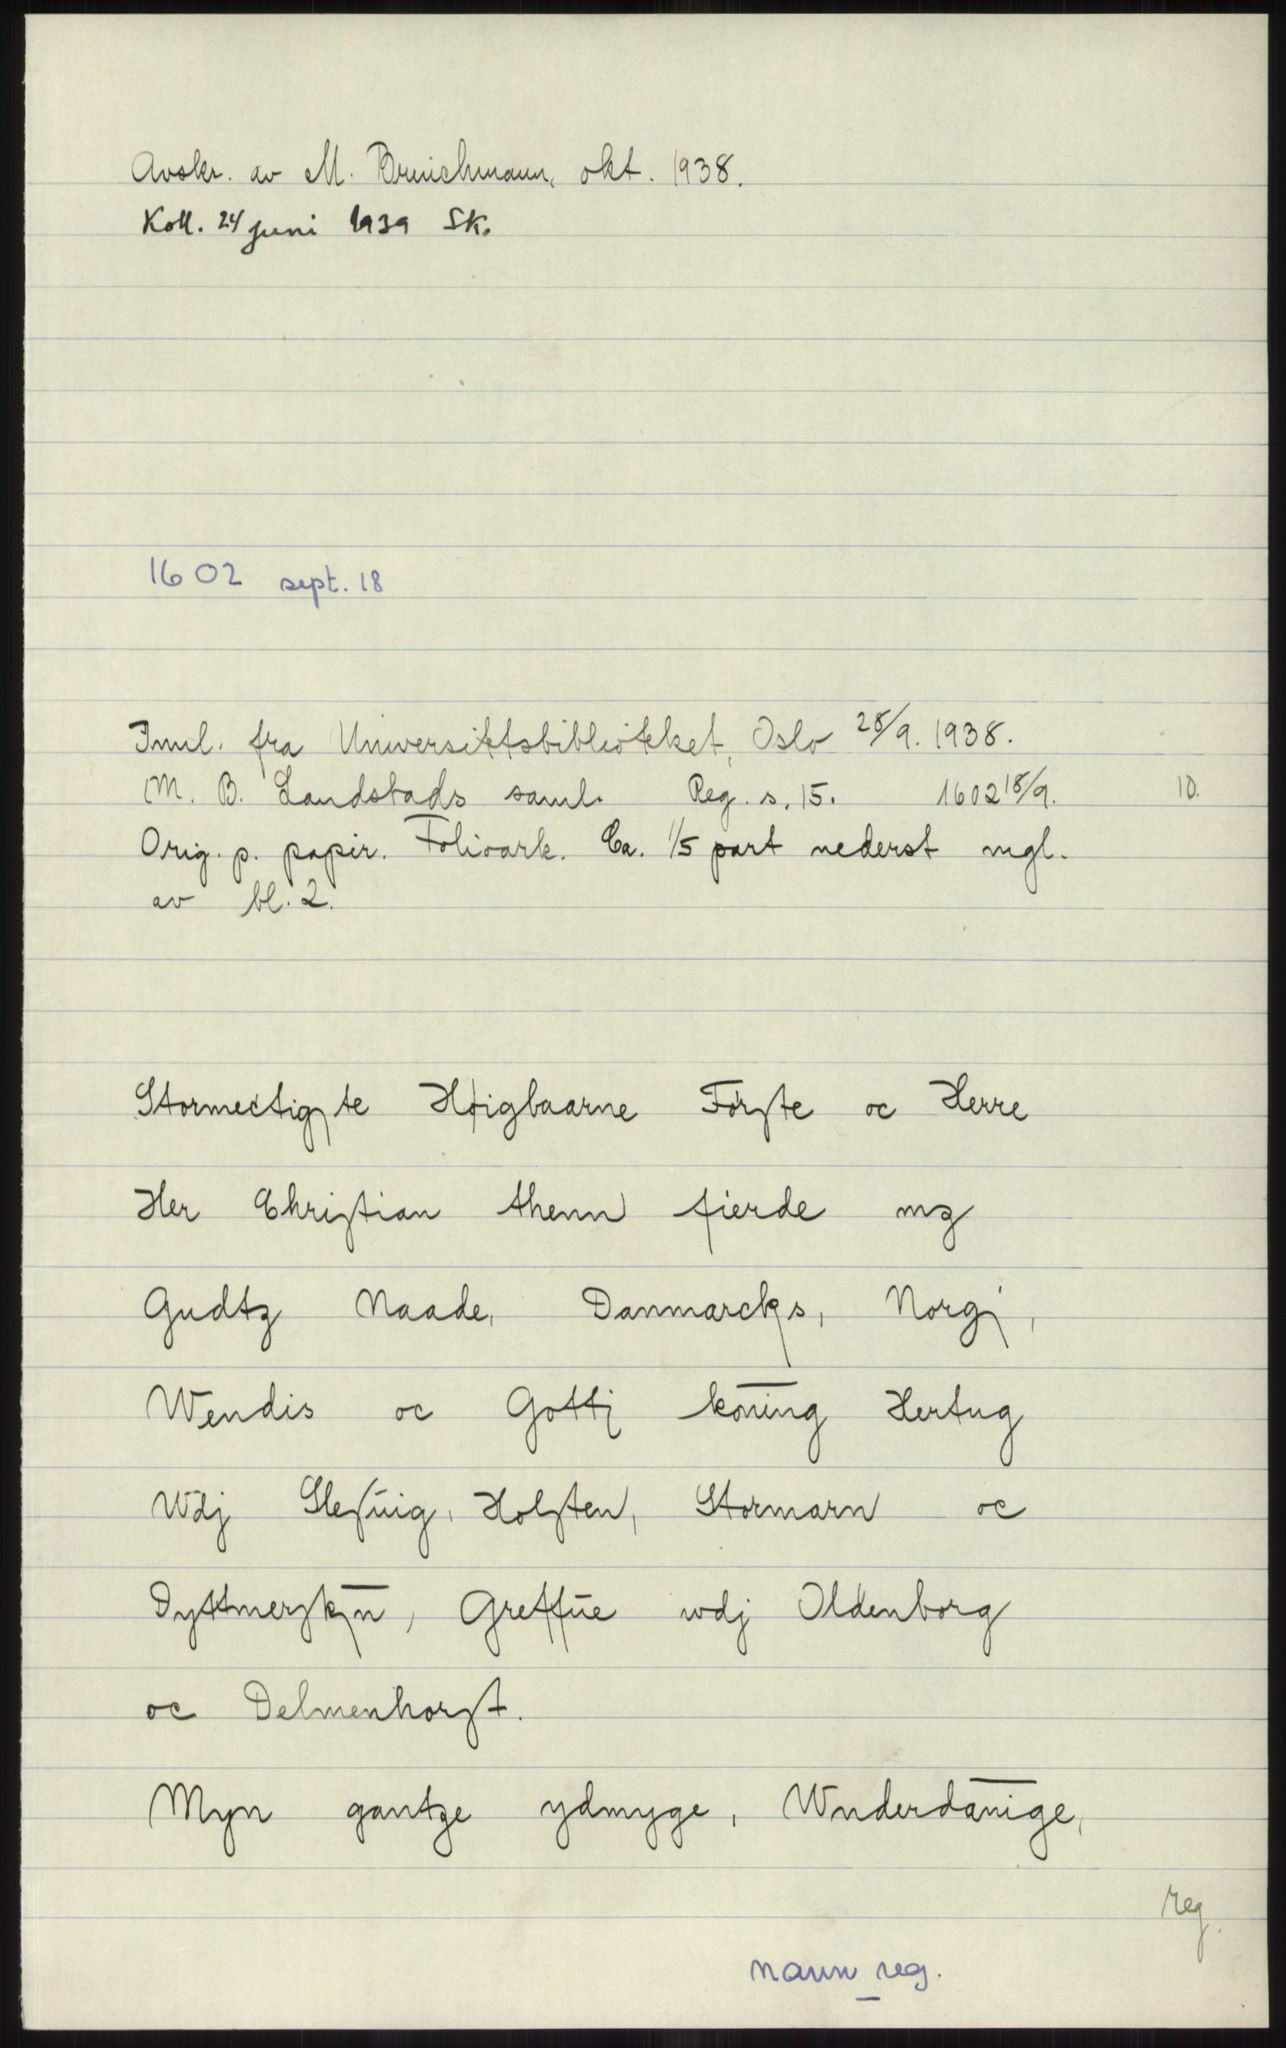 Avskr. av M. Brinchmann, okt. 1938.
Koll. 24 juni 1939 SK.
1602 sept. 18
Innl. fra Universitetsbiblioteket, Oslo 28/9. 1938.
M. B. Landstads saml. Reg. s. 15. 1602 18/9. 10.
Orig. p. papir. Folioark. Ca. 1/5 part nederst mgl.
av bl. 2.
Stormectigste Høigbaarne Første oc Herre
Her Christian thenn fierde mz
Gudtz Naade, Danmarcks, Norgis,
Wendis oc Gottis konīng Hertug
Wdj Slesuig, Holsten, Stormarn oc
Dyttmerskēn, Greffue wdj Oldenborg
oc Delmenhorst.
Myn gantze ydmyge, Wnderdānige,
reg.
navn reg.